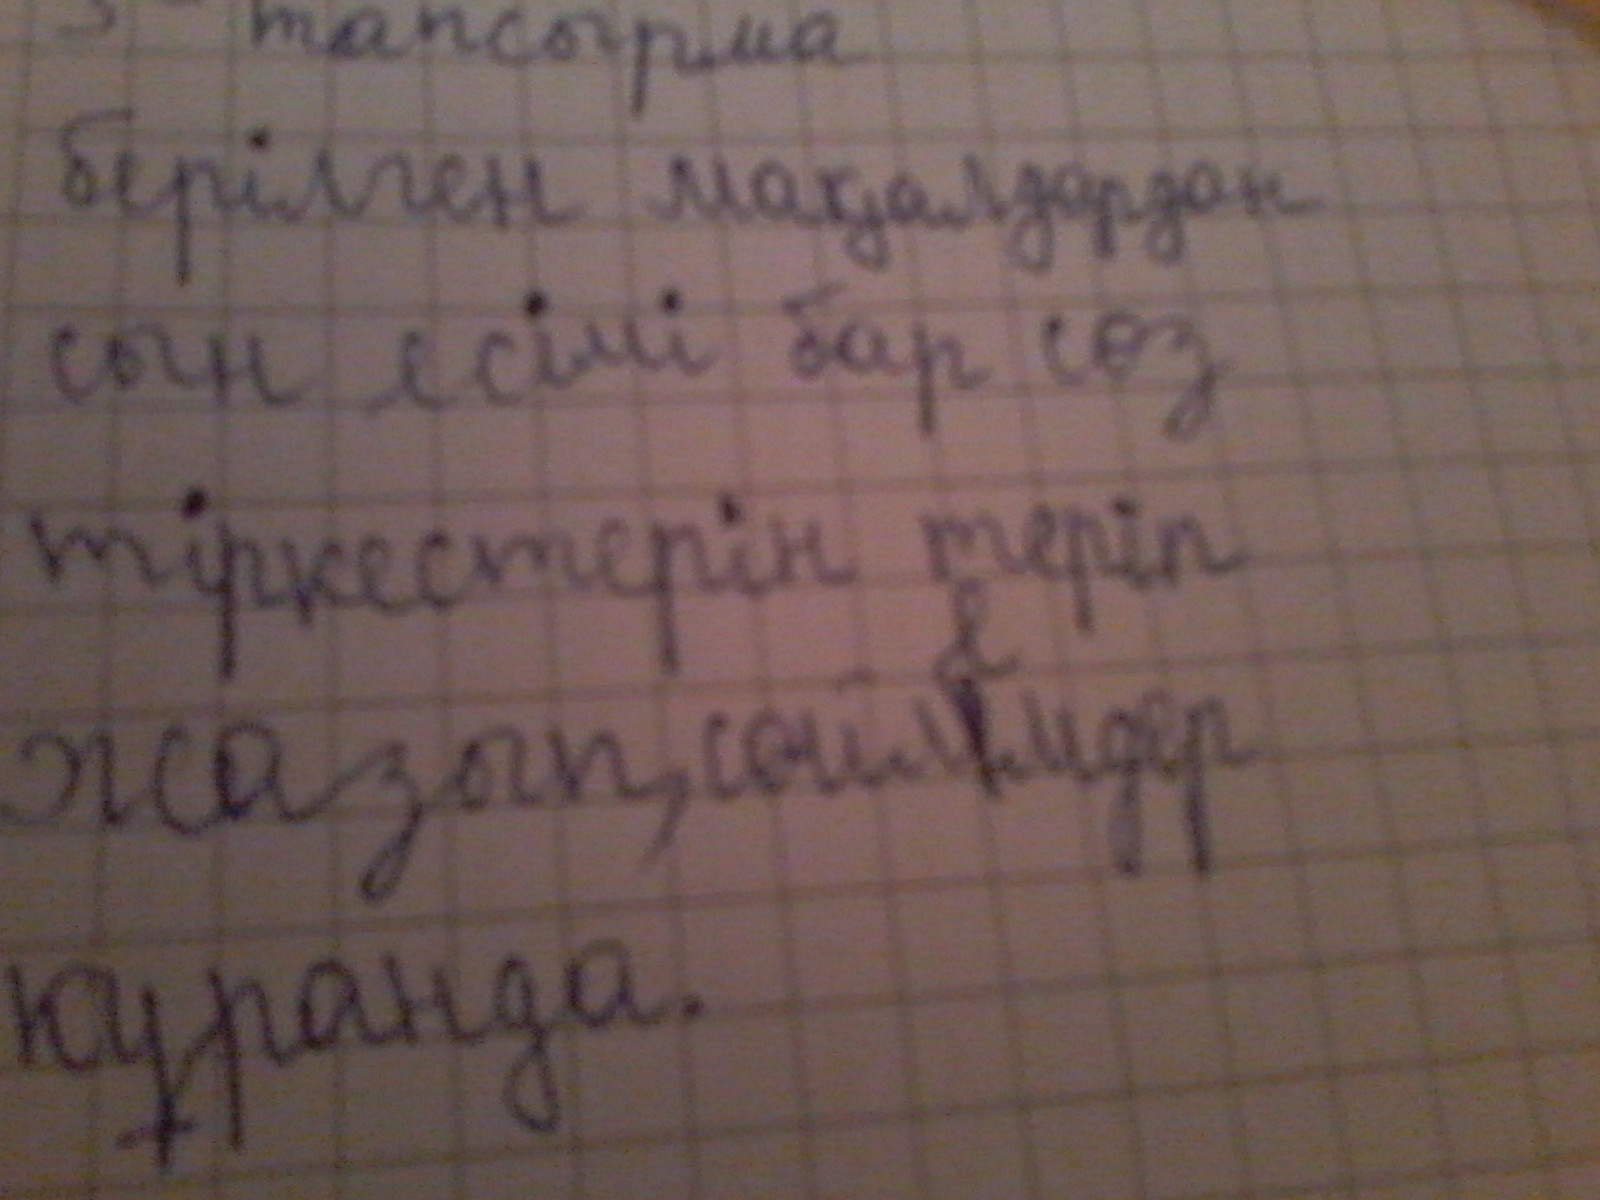 3 - тапсырма
берілген мақалдардан
сын есімі бар сөз
тіркестерін теріп
жазып, сөйлемдер
құранда.